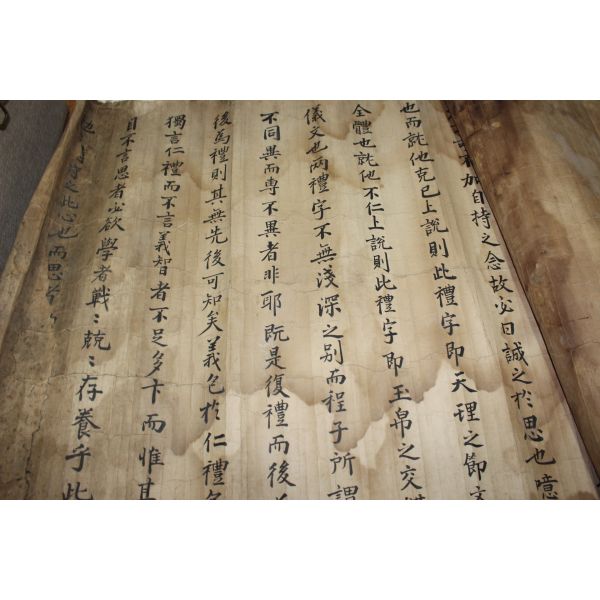 加自持之念故必曰誠之於思也噫
也而託他克已上說則此禮字即天理之節文
全體也託他不仁上說則此禮字即玉帛之交
儀文也兩禮字不無淺深之别而程子所謂
不同異而專不異者非耶既是復禮而後
後爲禮則其無先後可知矣義包於仁禮
獨言仁禮而不言義智者不足多卞而惟其
目不言思者必欲學者戰〻兢〻存養乎此
之此心也而思